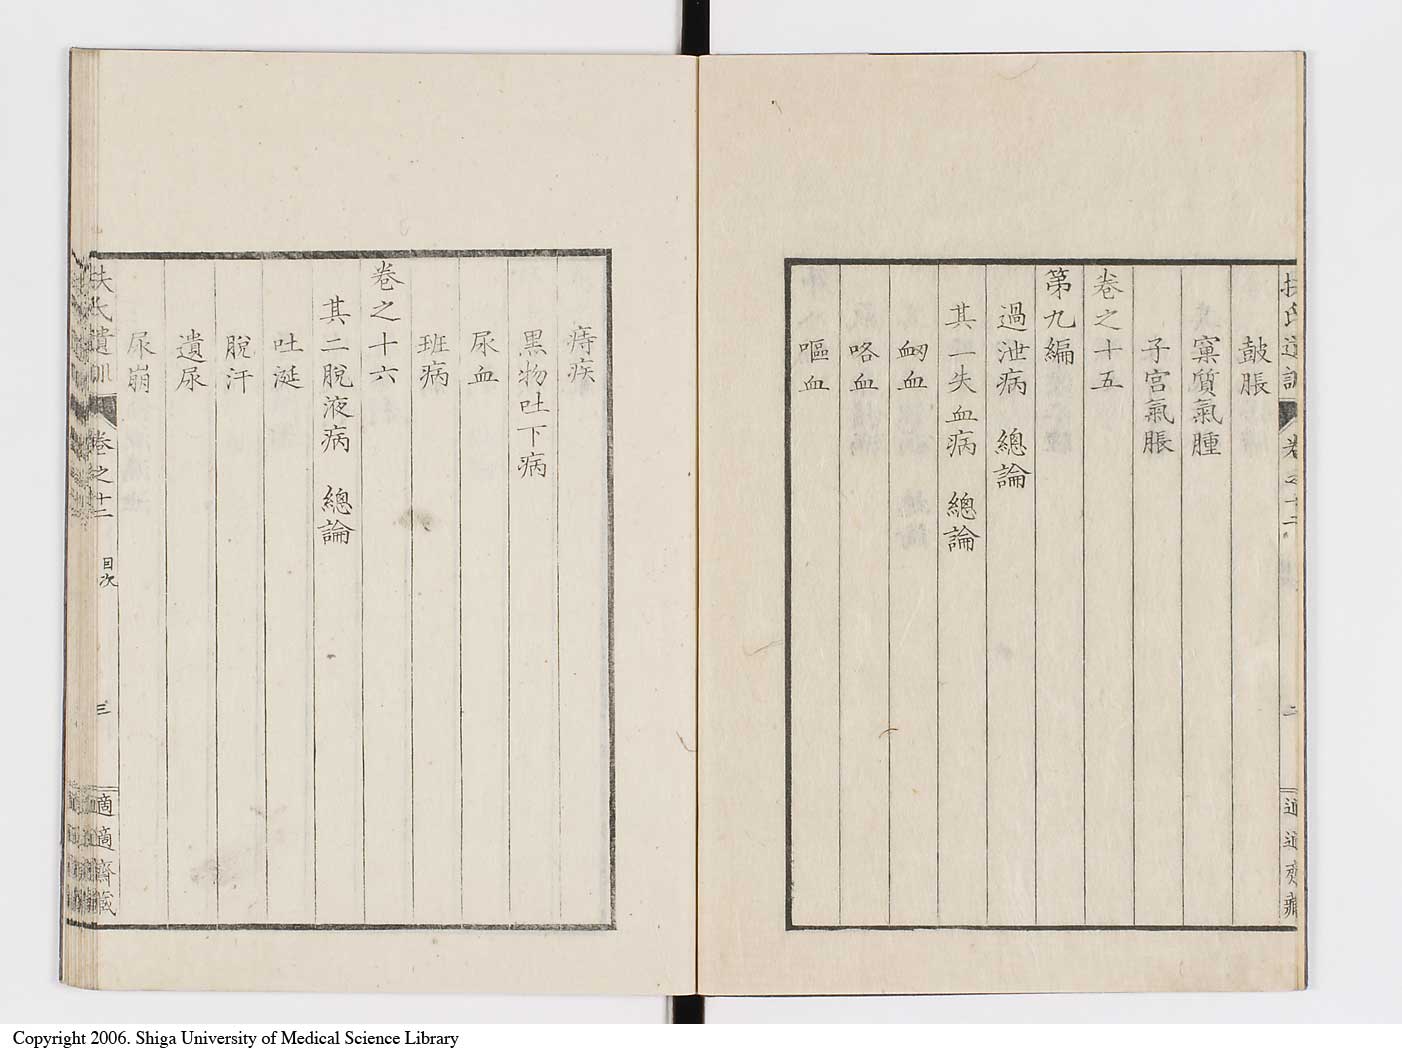 鼓脹
窠質氣腫
子宮氣脹
卷之十五
第九編
過泄病 總論
其一失血病 總論
衂血
咯血
嘔血
痔疾
黒物吐下病
尿血
班病
卷之十六
其二脫液病 總論
吐涎
脫汗
遺尿
尿崩
扶氏遺訓 卷之十二 目次 三 適適齋藏
Copyright 2006. Shiga University of Medical Science Library